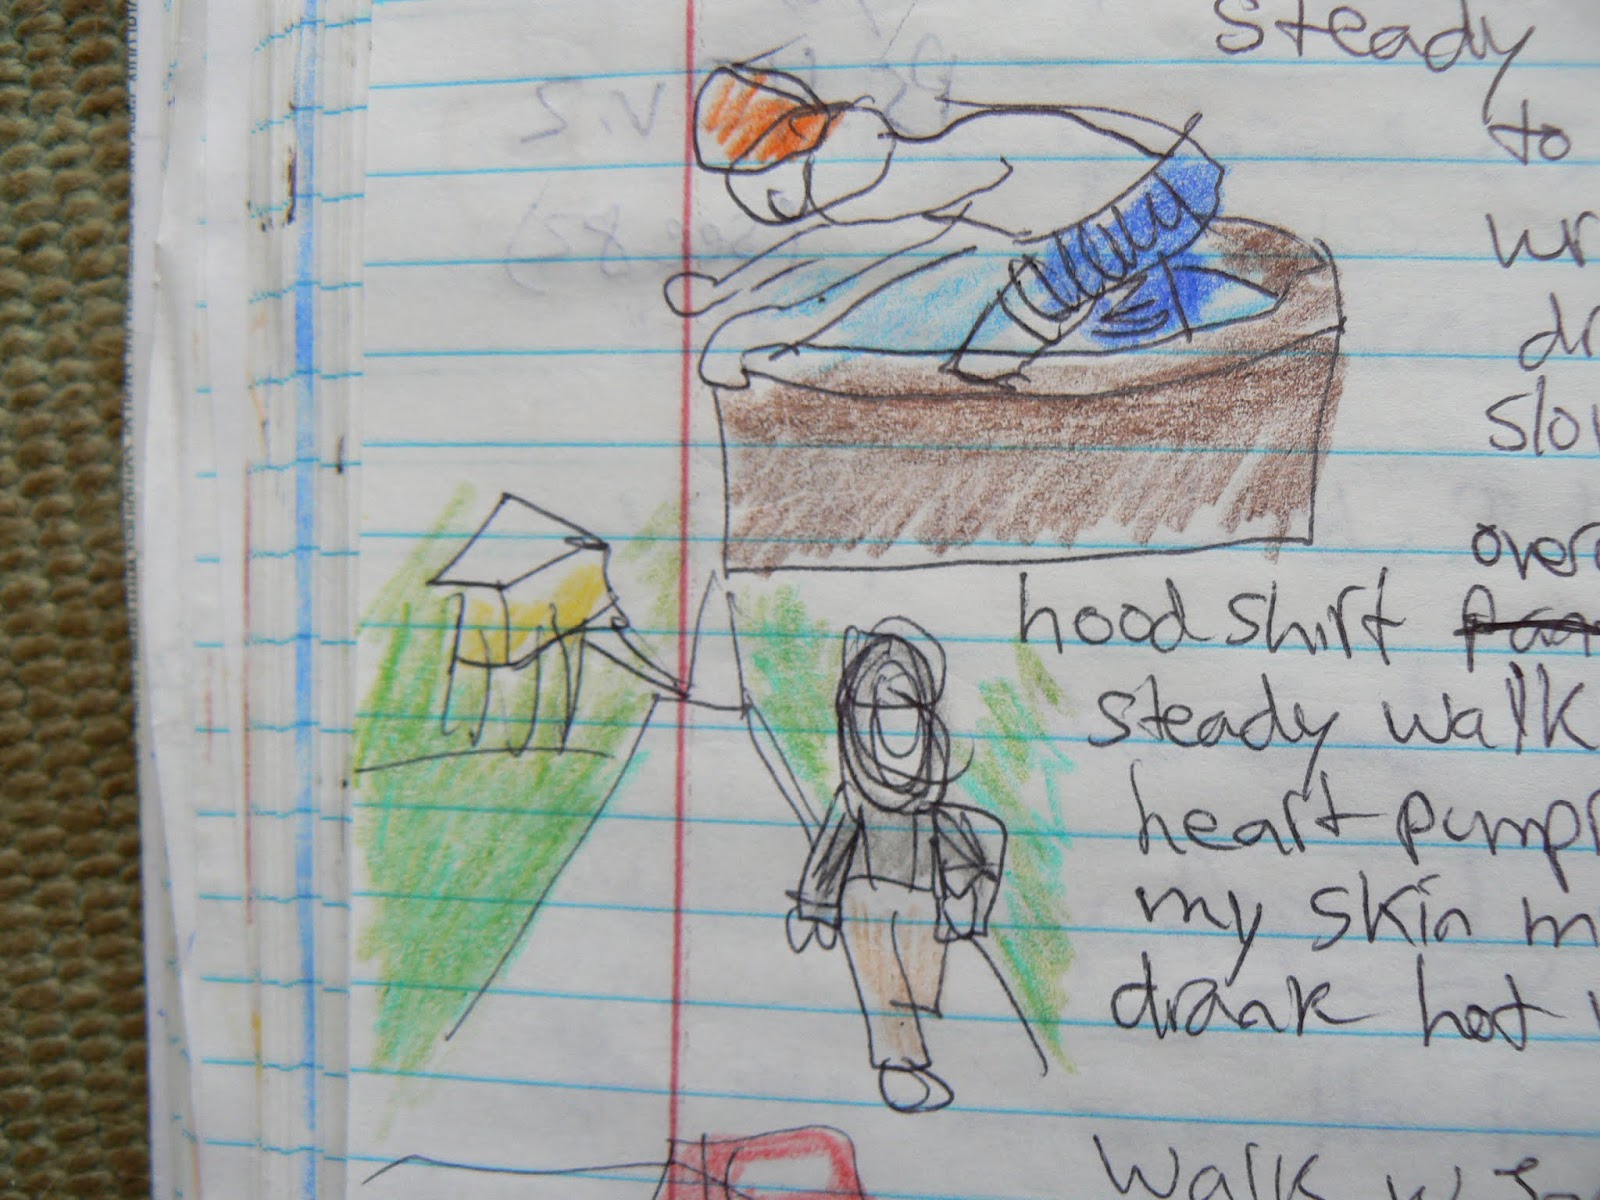 steady
to
wr
dr
slow
over
hood shirt
steady walk
heart pump
my skin m
drank hot
Walk